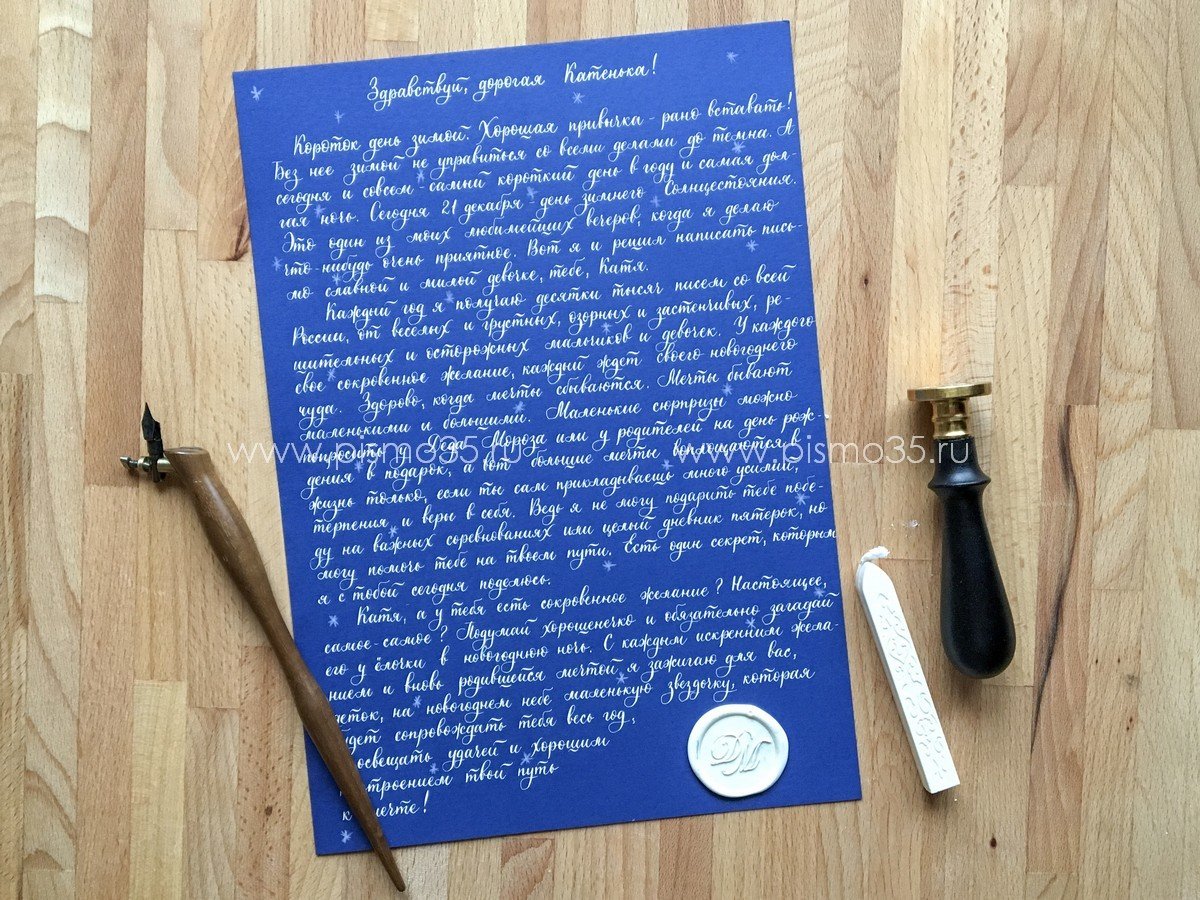 Здравствуй, дорогая Катенька!
Короток день зимой. Хорошая привычка - рано вставать!
Без нее зимой не управиться со всеми делами до темна. А
сегодня и совсем - самый короткий день в году и самая дол-
гая ночь. Сегодня 21 декабря - день зимнего Солнцестояния.
Это один из моих любимейших вечеров, когда я делаю
что-нибудь очень приятное. Вот я и решил написать пись-
мо славной и милой девочке, тебе, Катя.
Каждый год я получаю десятки тысяч писем со всей
России, от веселых и грустных, озорных и застенчивых, ре-
шительных и осторожных мальчиков и девочек. У каждого
свое сокровенное желание, каждый ждет своего новогоднего
чуда. Здорово, когда мечты сбываются. Мечты бывают
маленькими и большими. Маленькие сюрпризы можно
попросить у Деда Мороза или у родителей на день рож-
дения в подарок, а вот большие мечты воплощаются в
жизнь только, если ты сам прикладываешь много усилий,
терпения и веры в себя. Ведь я не могу подарить тебе побе-
ду на важных соревнованиях или целый дневник пятерок, но
могу помочь тебе на твоем пути. Есть один секрет, которым
я с тобой сегодня поделюсь.
Катя, а у тебя есть сокровенное желание? Настоящее,
самое-самое? Подумай хорошенечко и обязательно загадай
его у ёлочки в новогоднюю ночь. С каждым искренним жела-
нием и вновь родившейся мечтой я зажигаю для вас,
деток, на новогоднем небе маленькую звездочку, которая
будет сопровождать тебя весь год,
освещать удачей и хорошим
настроением твой путь
к мечте!
ДМ
www.pismo35.ru www.pismo35.ru